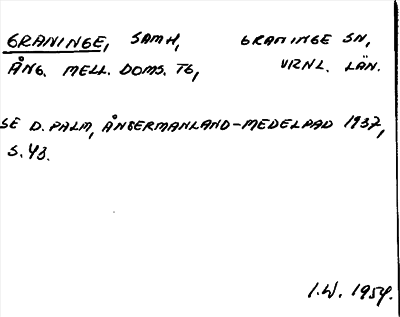 GRANINGE, SAMH, GRANINGE SN,
ÅNG. MELL. DOMS. TG, VRNL. LÄN.
SE D. PALM, ÅNGERMANLAND-MEDELPAD 1937,
S. 43.
I.W. 1954.